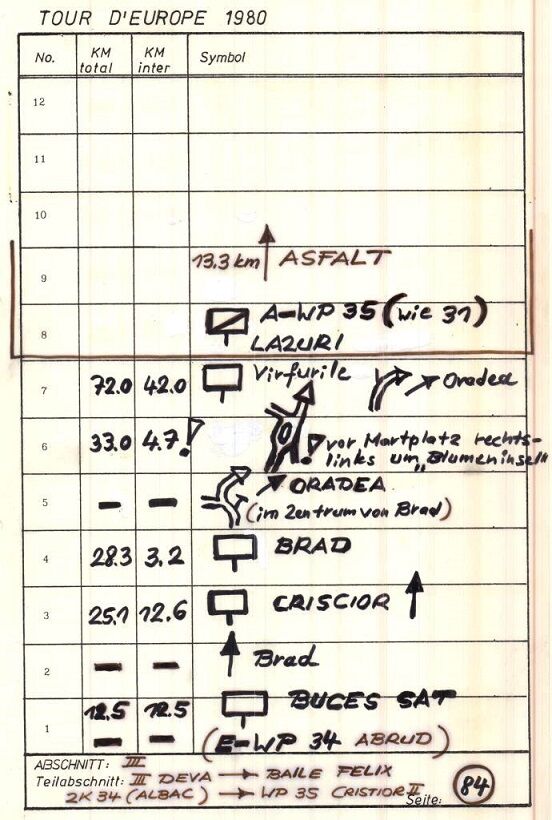 TOUR D'EUROPE 1980
No. KM total KM inter Symbol
12
11
10
9 13.3 km ASFALT
8 A-WP 35 (wie 31)
LAZURI
7 72.0 42.0 Virfurile Oradea
6 33.0 4.7! ! vor Martplatz rechts-
links um „Blumeninsel"
5 — — ORADEA
(im Zentrum von Brad)
4 28.3 3.2 BRAD
3 25.1 12.6 CRISCIOR
2 — — Brad
1 12.5 12.5 BUCES SAT
— — (E-WP 34 ABRUD)
ABSCHNITT: III
Teilabschnitt: III DEVA → BAILE FELIX
ZK 34 (ALBAC) → WP 35 CRISTIOR II
Seite: 84